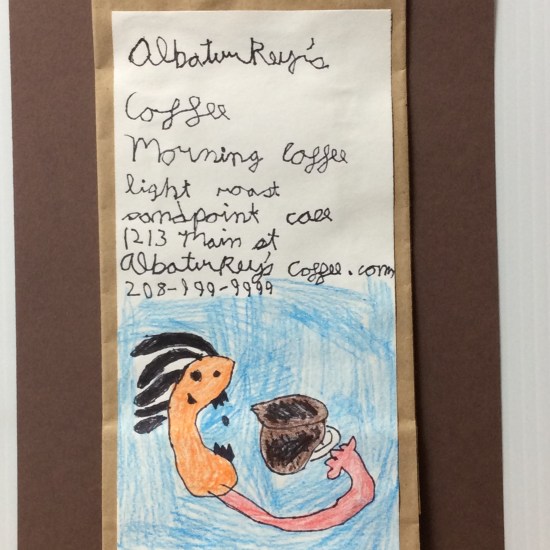 Albaturkey's
Coffee
Morning Coffee
light roast
sandpoint
1213 Main st
Albaturkey's Coffee.com
208-199-9999